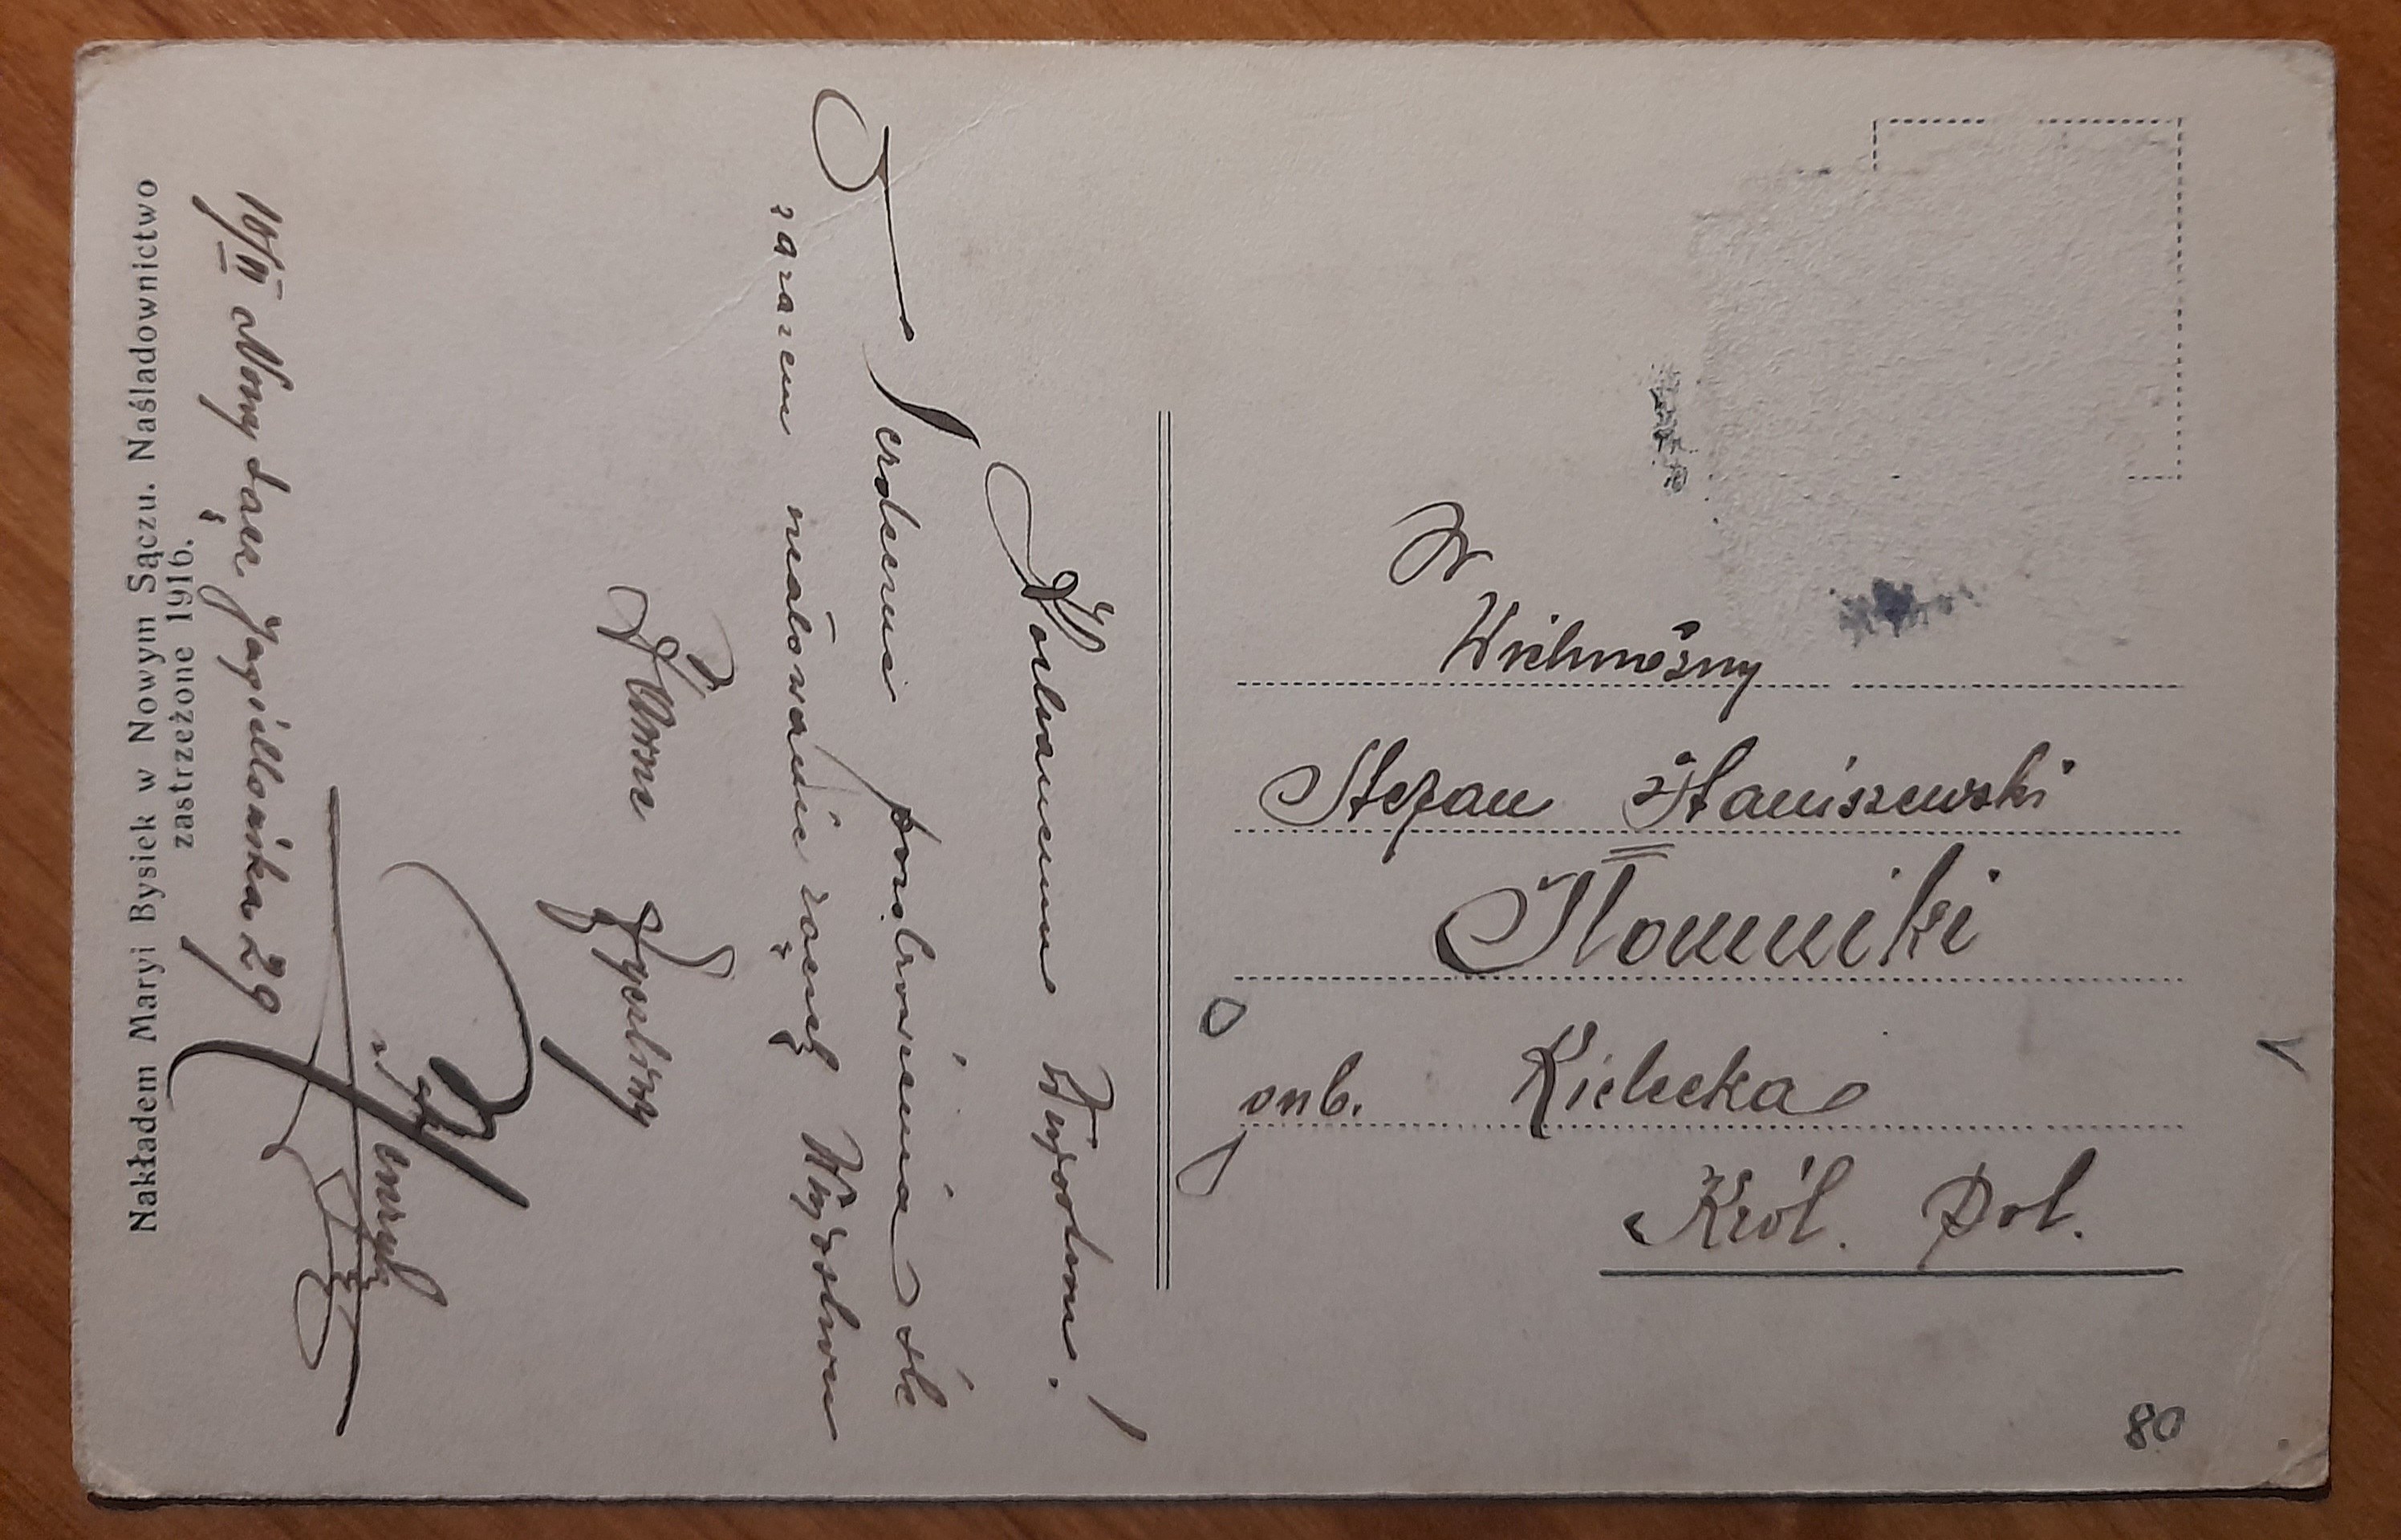 Nakładem Maryi Bysiek w Nowym Sączu. Naśladownictwo
zastrzeżone 1916.
Kochanemu Wujostwu!
Serdeczne pozdrowienia
zarazem ucałowanie rączek Wujostwu
życzliwy
Henryk
Nowy Sącz Jagiellońska 29
W
Wielmożny
Stefan Staniszewski
Słomniki
gub. Kielecka
Król. Pol.
80